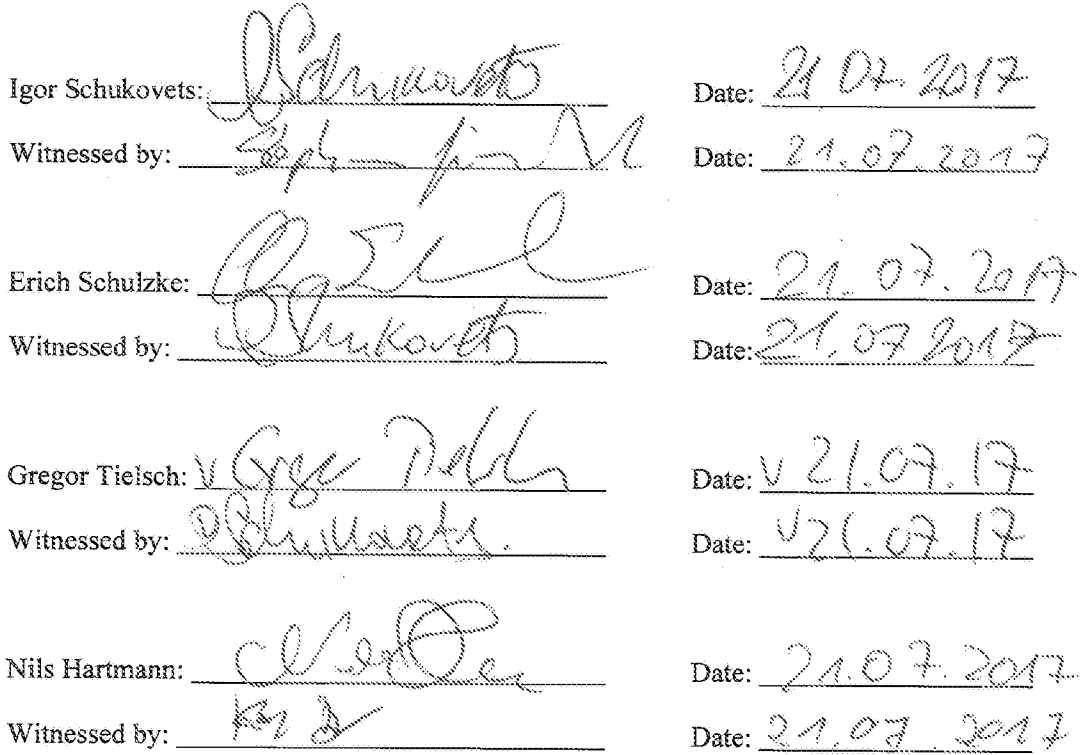 Igor Schukovets: Schukovets Date: 21 07. 2017
Witnessed by: Date: 21.07.2017
Erich Schulzke: Date: 21.07.2017
Witnessed by: Schukovets Date: 21.07 2017
Gregor Tielsch: v Gregor Date: v 21.07.17
Witnessed by: Schukovets. Date: v21.07.17
Nils Hartmann: Date: 21.07.2017
Witnessed by: Date: 21.07 2017